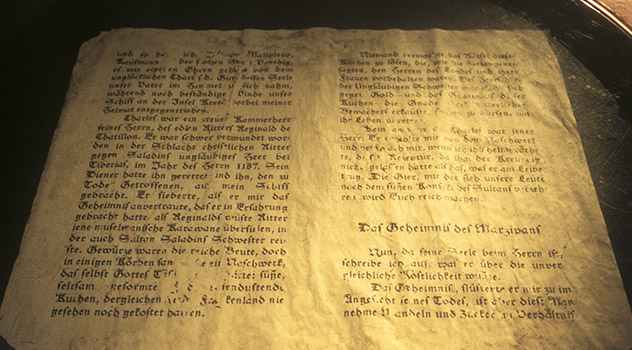 und so ha ich, Malipiero,
Kaufmann der Stadt Venedig,
es mit eigenen Ohren von dem
unglücklichen Charles dessen Seele
unser Vater im Himmel zu sich nahm,
während noch beständige Winde unser
Schiff an der Insel Kreta vorbei meiner
Heimat entgegentrieben.
Charles war ein treuer Kammerherr
seines Herrn, des edlen Ritters Reginald de
Chatillon. Er war schwer verwundet wor-
den in der Schlacht christlicher Ritter
gegen Saladins ungläubiges Heer bei
Tiberias, im Jahr des Herrn 1187. Sein
Diener hatte ihn gerettet und ihn, den zu
Tode Getroffenen, auf mein Schiff
gebracht. Er fieberte, als er mir das
Geheimnis anvertraute, das er in Erfahrung
gebracht hatte, als Reginalds Ritter
jene muselmanische Karawane überfielen, in
der auch Sultan Saladins Schwester rei-
ste. Gewürze waren die reiche Beute, doch
in einigen Körben Naschwerk,
das selbst Gottes süße,
seltsam geformte duftende
Kuchen, dergleichen Frankenland nie
gesehen noch gekostet hatten.
Niemand vermochte das Rätsel dieser
Kuchen zu lösen, die, wie die Gefangenen
sagten, den Herren des Landes und ihren
Frauen vorbehalten waren.
der Ungläubigen Schwester
gegen Gold und das der
Kuchen die Gnade
Bewacher erkaufte zu dürfen, um
ihr Leben
Charles war jener
Herr. Naschwerk
und mir, wenn
te, Rezeptur, da ihm der
nichts gelassen hatte als das, was er am Leibe
trug. Die Gier, mit der sich unsere Leute
nach dem süßen Konfekt des Sultans
wird Euch reich machen.
Das Geheimnis des Marzipans
Nun, da seine Seele beim Herrn ist,
schreibe ich auf, was er über die unver-
gleichliche Köstlichkeit wußte.
Das Geheimnis, flüsterte er mir zu im
Angesicht seines Todes, ist aber dies: Man
nehme Mandeln und Zucker im Verhältnis